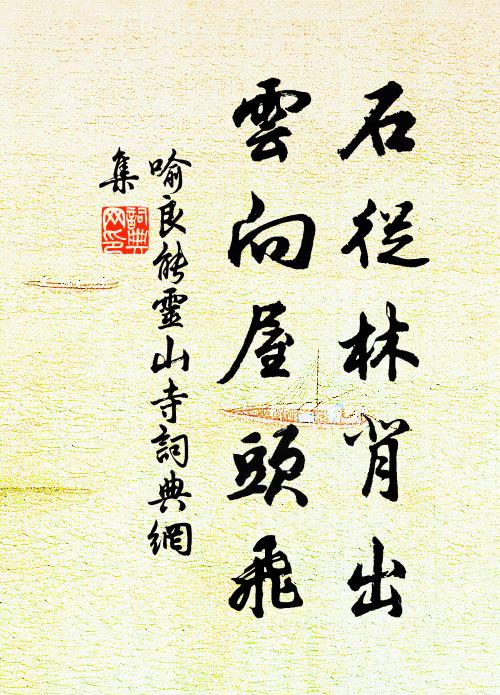 石從林背出
雲向屋頭飛
喻良能靈山寺詞典網
集
詞典
网印